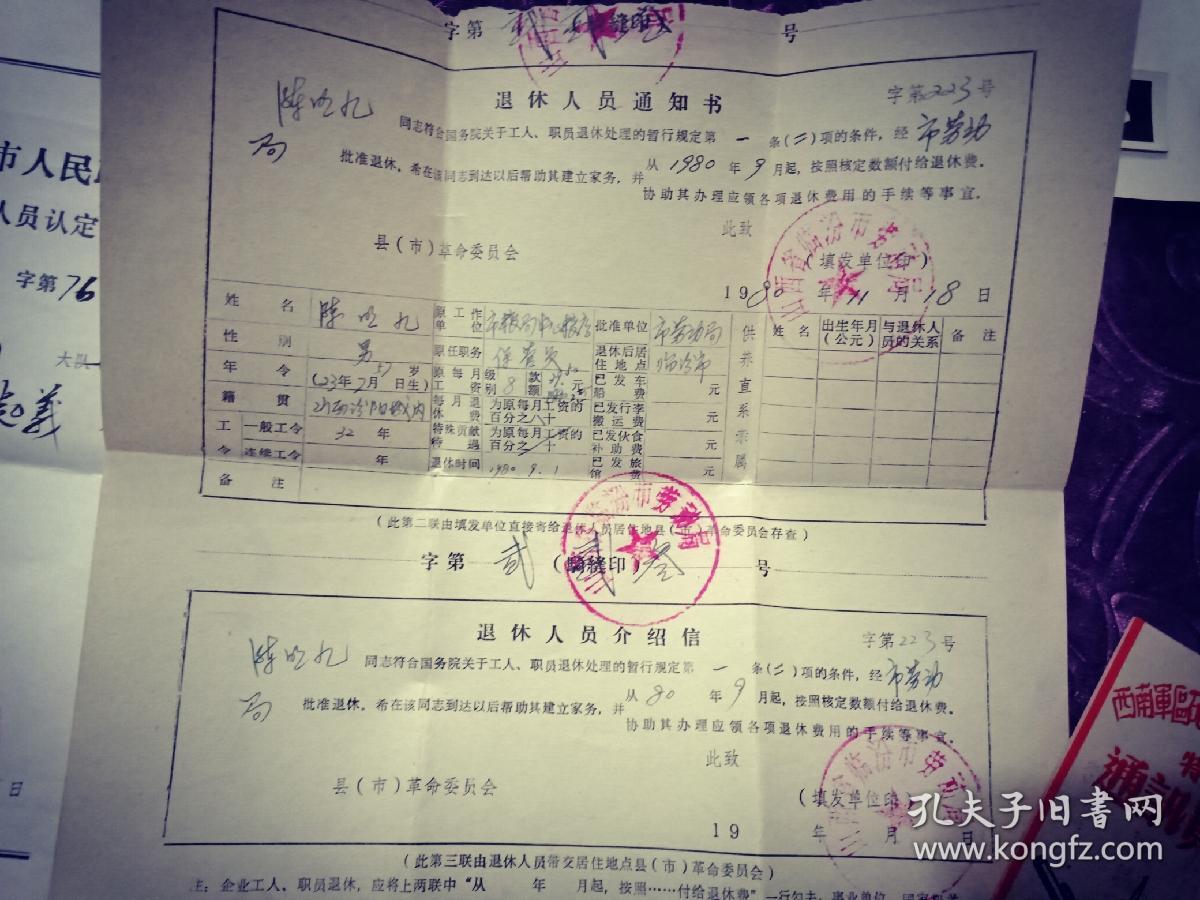 字第 贰 贰 叁 号
退休人员通知书
字第223号
同志符合国务院关于工人、职员退休处理的暂行规定第一条(二)项的条件，经市劳动
局 批准退休。希在该同志到达以后帮助其建立家务，并从1980年9月起，按照核定数额付给退休费。
协助其办理应领各项退休费用的手续等事宜。
此致
县(市)革命委员会
(填发单位印)
1980年11月18日
山西省临汾市劳动局
姓名 陈 九 原工作单位 批准单位 市劳动局 供养直系亲属 姓名 出生年月(公元) 与退休人员的关系 备注
性别 男 原任职务 保管员 退休后居住地点 临汾市
年令 57岁(23年7月日生) 原每月工资 级别 8 款额 元 已发车船费 元
籍贯 山西汾阳城内 每月退休费 为原每月工资的百分之八十 已发行李搬运费 元
工令 一般工令 32年 特殊贡献待遇 为原每月工资的百分之十 已发伙食补助费 元
连续工令 年 退休时间 1980.9.1 已发旅馆费 元
备注
(此第二联由填发单位直接寄给退休人员居住地县(市)革命委员会存查)
字第 贰 贰 叁 (骑缝印) 号
山西省临汾市劳动局
退休人员介绍信
字第223号
同志符合国务院关于工人、职员退休处理的暂行规定第一条(二)项的条件，经市劳动
局 批准退休。希在该同志到达以后帮助其建立家务，并从80年9月起，按照核定数额付给退休费。
协助其办理应领各项退休费用的手续等事宜。
此致
县(市)革命委员会
(填发单位印)
19 年 月 日
山西省临汾市劳动局
(此第三联由退休人员带交居住地点县(市)革命委员会)
注：企业工人、职员退休，应将上两联中“从 年 月起，按照……付给退休费”一行勾去，事业单位、国家机关
市人民
人员认定
字第76
大队
义
日
西南軍區
孔夫子旧书网
www.kongfz.com